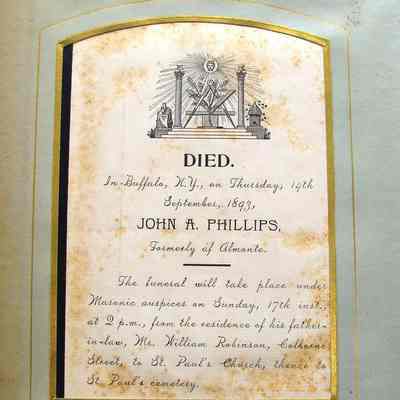 DIED.
In Buffalo, N.Y., on Thursday, 14th
September, 1893,
JOHN A. PHILLIPS,
Formerly of Almonte.
The funeral will take place under
Masonic auspices on Sunday, 17th inst.,
at 2 p.m., from the residence of his father-
in-law, Mr. William Robinson, Colborne
Street, to St. Paul's Church, thence to
St. Paul's cemetery.